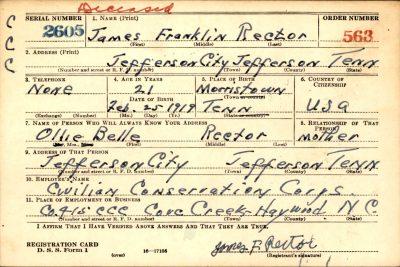 Deceased
SERIAL NUMBER 1. NAME (Print) ORDER NUMBER
C 2605 James Franklin Rector 563
C (First) (Middle) (Last)
C 2. ADDRESS (Print)
Jefferson City Jefferson Tenn
(Number and street or R. F. D. number) (Town) (County) (State)
3. TELEPHONE 4. AGE IN YEARS 5. PLACE OF BIRTH 6. COUNTRY OF CITIZENSHIP
None 21 Morristown
DATE OF BIRTH (Town or county)
Feb. 25 1919 Tenn U S A
(Exchange) (No.) (Mo.) (Day) (Yr.) (State or country)
7. NAME OF PERSON WHO WILL ALWAYS KNOW YOUR ADDRESS 8. RELATIONSHIP OF THAT PERSON
Ollie Belle Rector mother
(First) (Middle) (Last)
9. ADDRESS OF THAT PERSON
Jefferson City Jefferson Tenn
(Number and street or R. F. D. number) (Town) (County) (State)
10. EMPLOYER'S NAME
Civilian Conservation Corps.
11. PLACE OF EMPLOYMENT OR BUSINESS
CCC Cove Creek Haywood N. C.
(Number and street or R. F. D. number) (Town) (County) (State)
I AFFIRM THAT I HAVE VERIFIED ABOVE ANSWERS AND THAT THEY ARE TRUE.
REGISTRATION CARD
D. S. S. Form 1 16—17105 James F. Rector
(Registrant's signature)